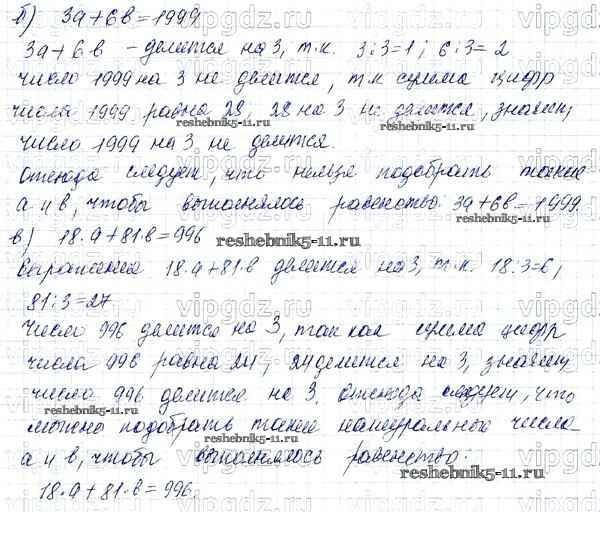 б) 3а+6в=1999
3а+6в - делится на 3, т.к. 3:3=1; 6:3=2
число 1999 на 3 не делится, т.к сумма цифр
числа 1999 равна 28, 28 на 3 не делится, значит,
reshebnik5-11.ru
число 1999 на 3 не делится.
Отсюда следует, что нельзя подобрать такие
а и в, чтобы выполнялось равенство 3а+6в=1999
в) 18·а+81·в=996
reshebnik5-11.ru
Выражение 18·а+81·в делится на 3, т.к. 18:3=6,
81:3=27
Число 996 делится на 3, так как сумма цифр
числа 996 равна 24, 24 делится на 3, значит,
число 996 делится на 3. Отсюда следует, что
reshebnik5-11.ru
можно подобрать такие натуральные числа
а и в, чтобы выполнялось равенство:
reshebnik5-11.ru
18·а+81·в=996.